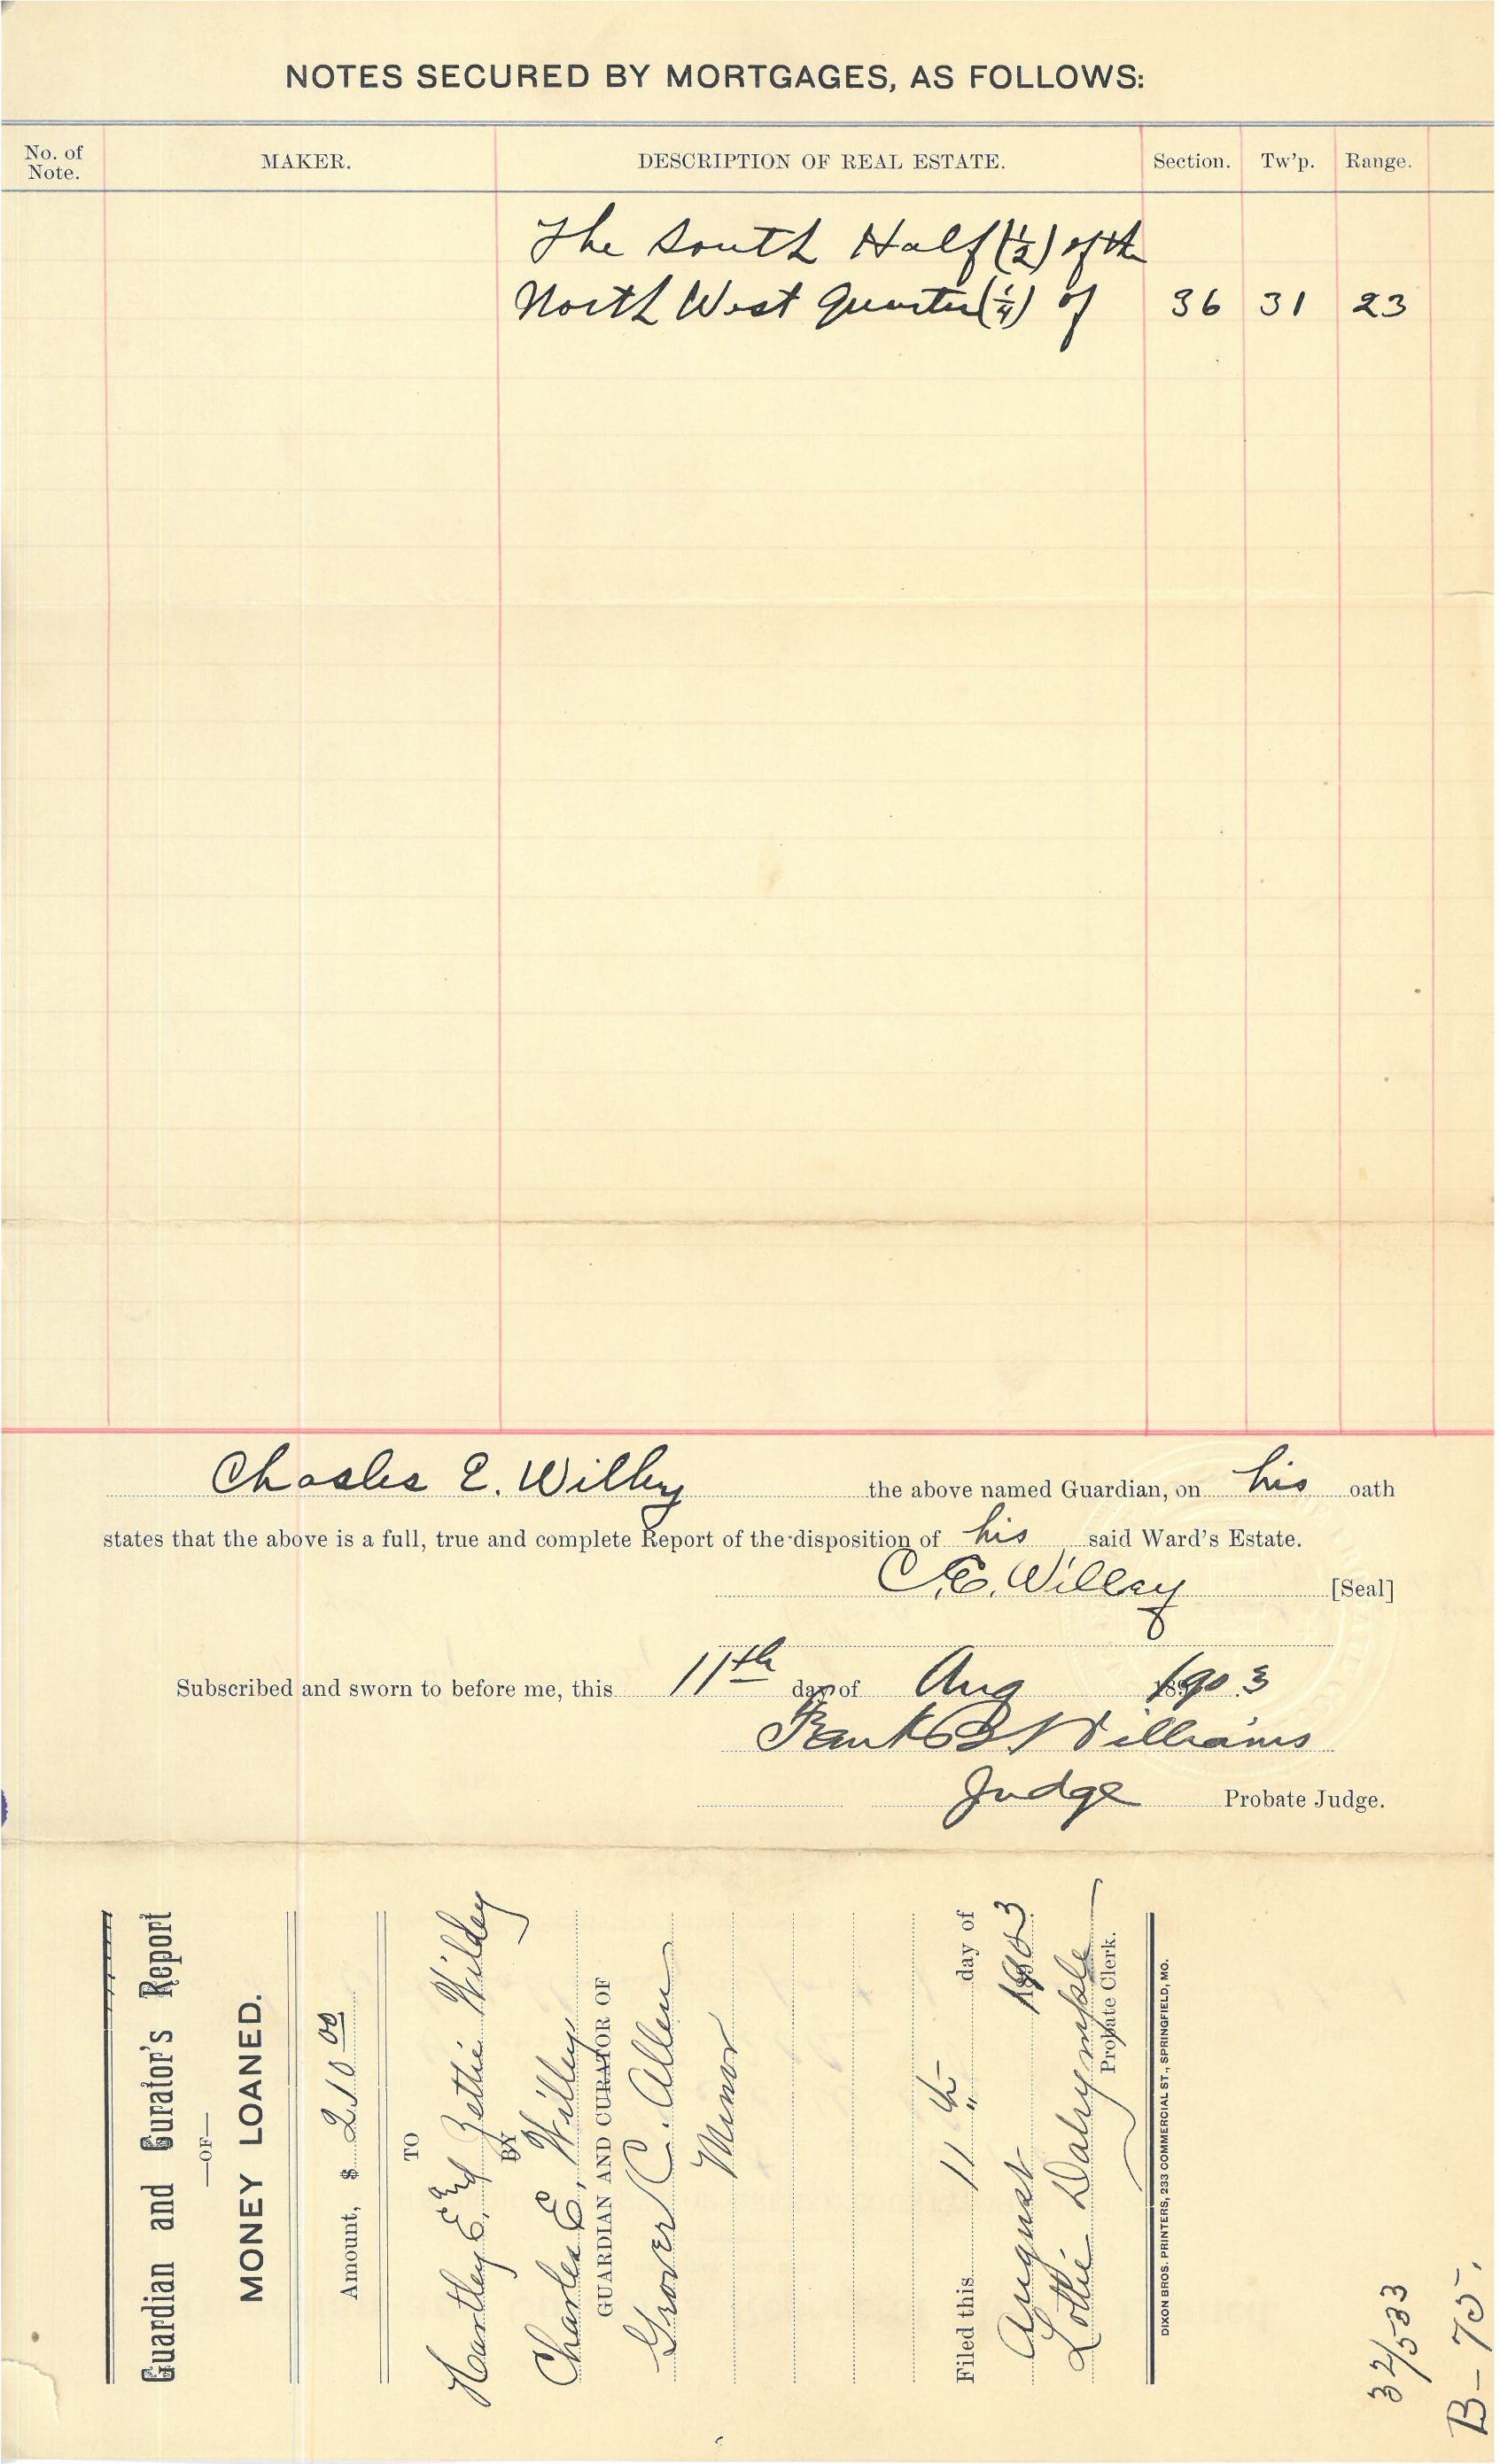 NOTES SECURED BY MORTGAGES, AS FOLLOWS:
No. of Note. MAKER. DESCRIPTION OF REAL ESTATE. Section. Tw'p. Range.
The South Half (1/2) of the
North West Quarter (1/4) of 36 31 23
Charles E. Willey the above named Guardian, on his oath
states that the above is a full, true and complete Report of the disposition of his said Ward's Estate.
C. E. Willey [Seal]
Subscribed and sworn to before me, this 11th day of Aug 1903
Frank B Williams
Judge Probate Judge.
Guardian and Curator's Report
—OF—
MONEY LOANED.
Amount, $ 210 00
TO
Hartley E. and Zettie Wilday
BY
Charles E. Willey
GUARDIAN AND CURATOR OF
Grover C. Allen
Minor
Filed this 11 th day of
August 1903
Lottie Dalrymple
Probate Clerk.
DIXON BROS. PRINTERS, 233 COMMERCIAL ST., SPRINGFIELD, MO.
32/533
B-75.